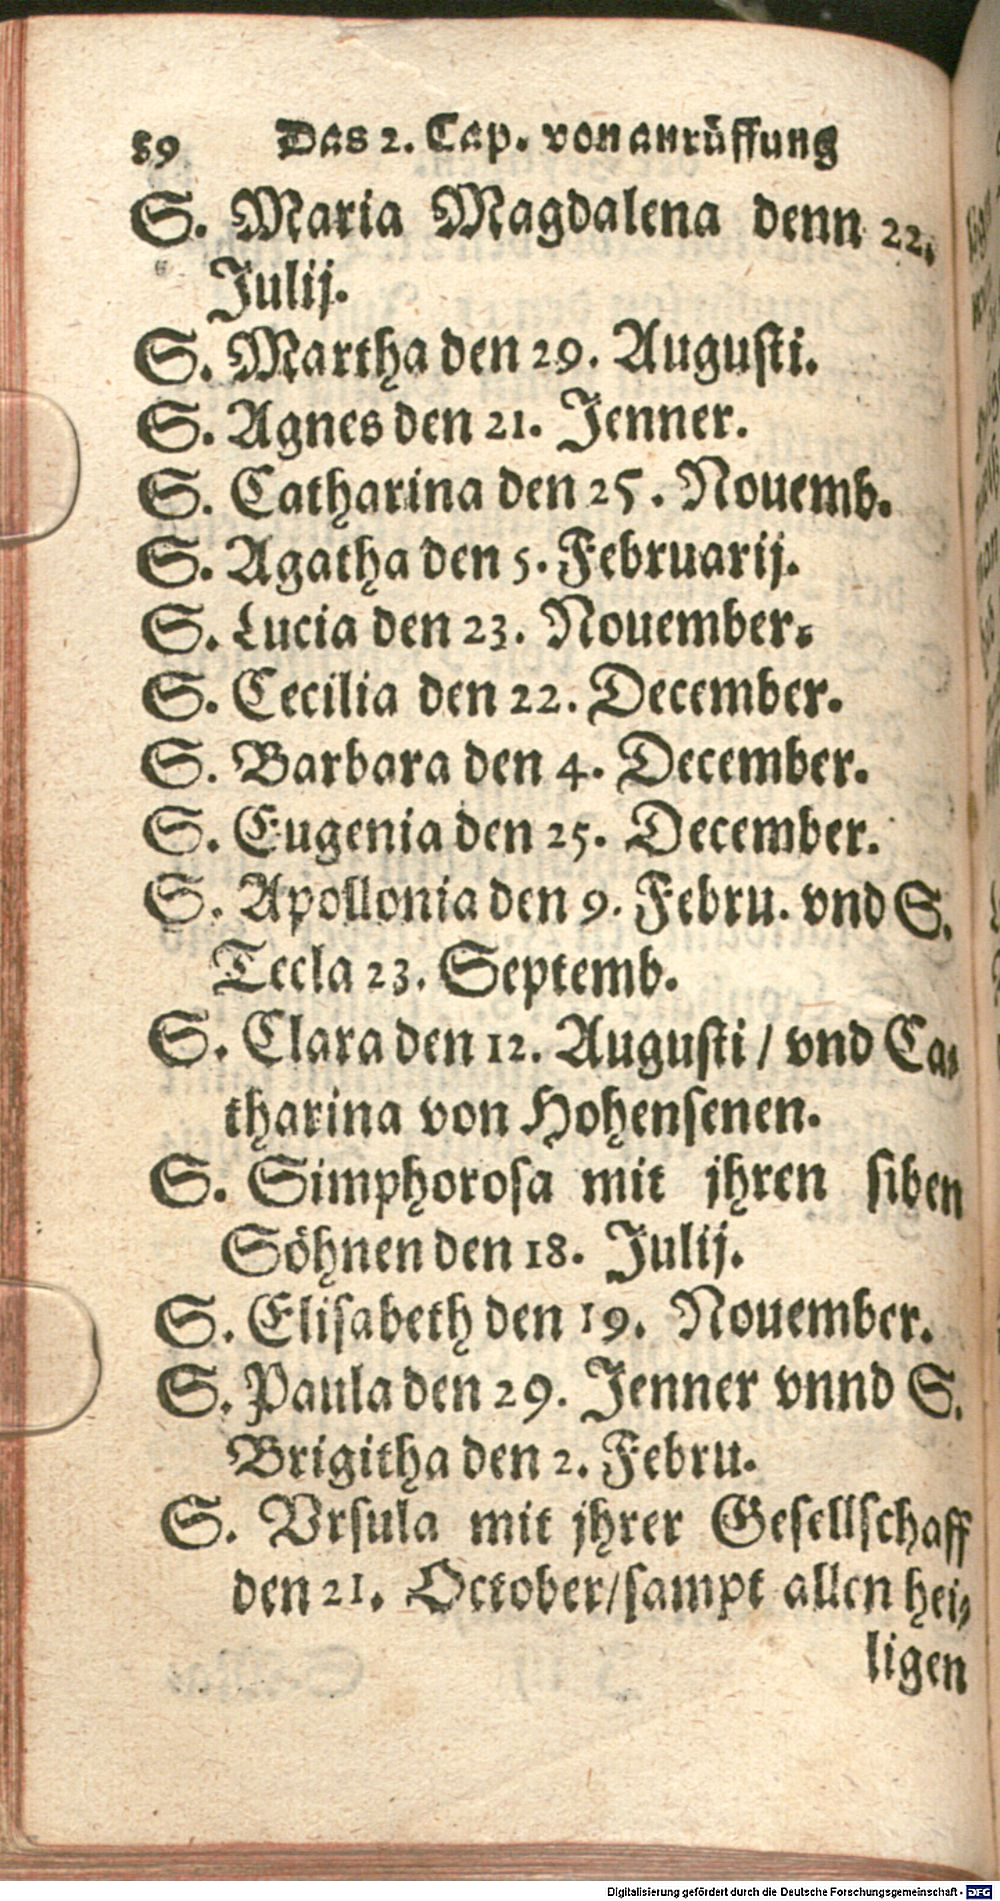 89 Das 2. Cap. von anrüffung
S. Maria Magdalena denn 22.
Julij.
S. Martha den 29. Augusti.
S. Agnes den 21. Jenner.
S. Catharina den 25. Nouemb.
S. Agatha den 5. Februarij.
S. Lucia den 23. Nouember.
S. Cecilia den 22. December.
S. Barbara den 4. December.
S. Eugenia den 25. December.
S. Apollonia den 9. Febru. vnd S.
Tecla 23. Septemb.
S. Clara den 12. Augusti / vnd Ca-
tharina von Hohensenen.
S. Simphorosa mit jhren siben
Söhnen den 18. Julij.
S. Elisabeth den 19. Nouember.
S. Paula den 29. Jenner vnnd S.
Brigitha den 2. Febru.
S. Vrsula mit jhrer Gesellschaff
den 21. October/sampt allen hei-
ligen
Digitalisierung gefördert durch die Deutsche Forschungsgemeinschaft - DFG